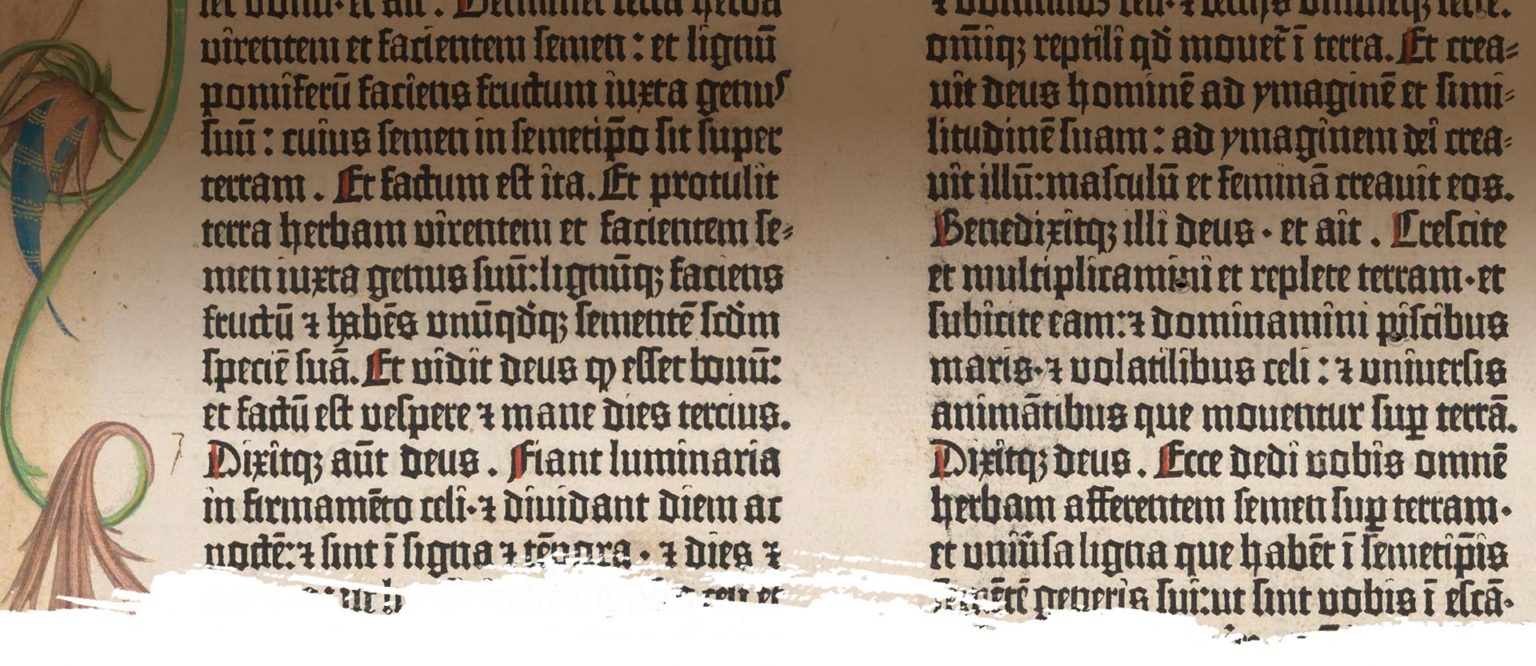 virentem et facientem semen : et lignū
pomiferū faciens fructum iuxta genus
suū : cuius semen in semetip̄o sit super
terram . Et factum est ita. Et protulit
terra herbam virentem et facientem se⸗
men iuxta genus suū:lignūqꝫ faciens
fructū ⁊ habēs vnūqd̓qꝫ sementē scd̓m
speciē suā. Et vidit deus ꝙ esset bonū:
et factū est vespere ⁊ mane dies tercius.
Dixitqꝫ aūt deus . Fiant luminaria
in firmamēto celi·⁊ diuidant diem ac
noctē:⁊ sint ī signa ⁊ tēpora · ⁊ dies ⁊
om̄iqꝫ reptili qd̓ mouet̄ ī terra. Et crea⸗
uit deus hominē ad ymaginē et simi⸗
litudinē suam : ad ymaginem dei crea⸗
uit illū:masculū et feminā creauit eos.
Benedixitqꝫ illi deus · et ait . Crescite
et multiplicamini et replete terram·et
subicite eam:⁊ dominamini piscibus
maris·⁊ volatilibus celi : ⁊ vniuersis
animātibus que mouentur suꝑ terrā.
Dixitqꝫ deus . Ecce dedi vobis omnē
herbam afferentem semen suꝑ terram·
et vniūsa ligna que habēt ī semetip̄is
semētē generis sui:ut sint vobis ī escā·